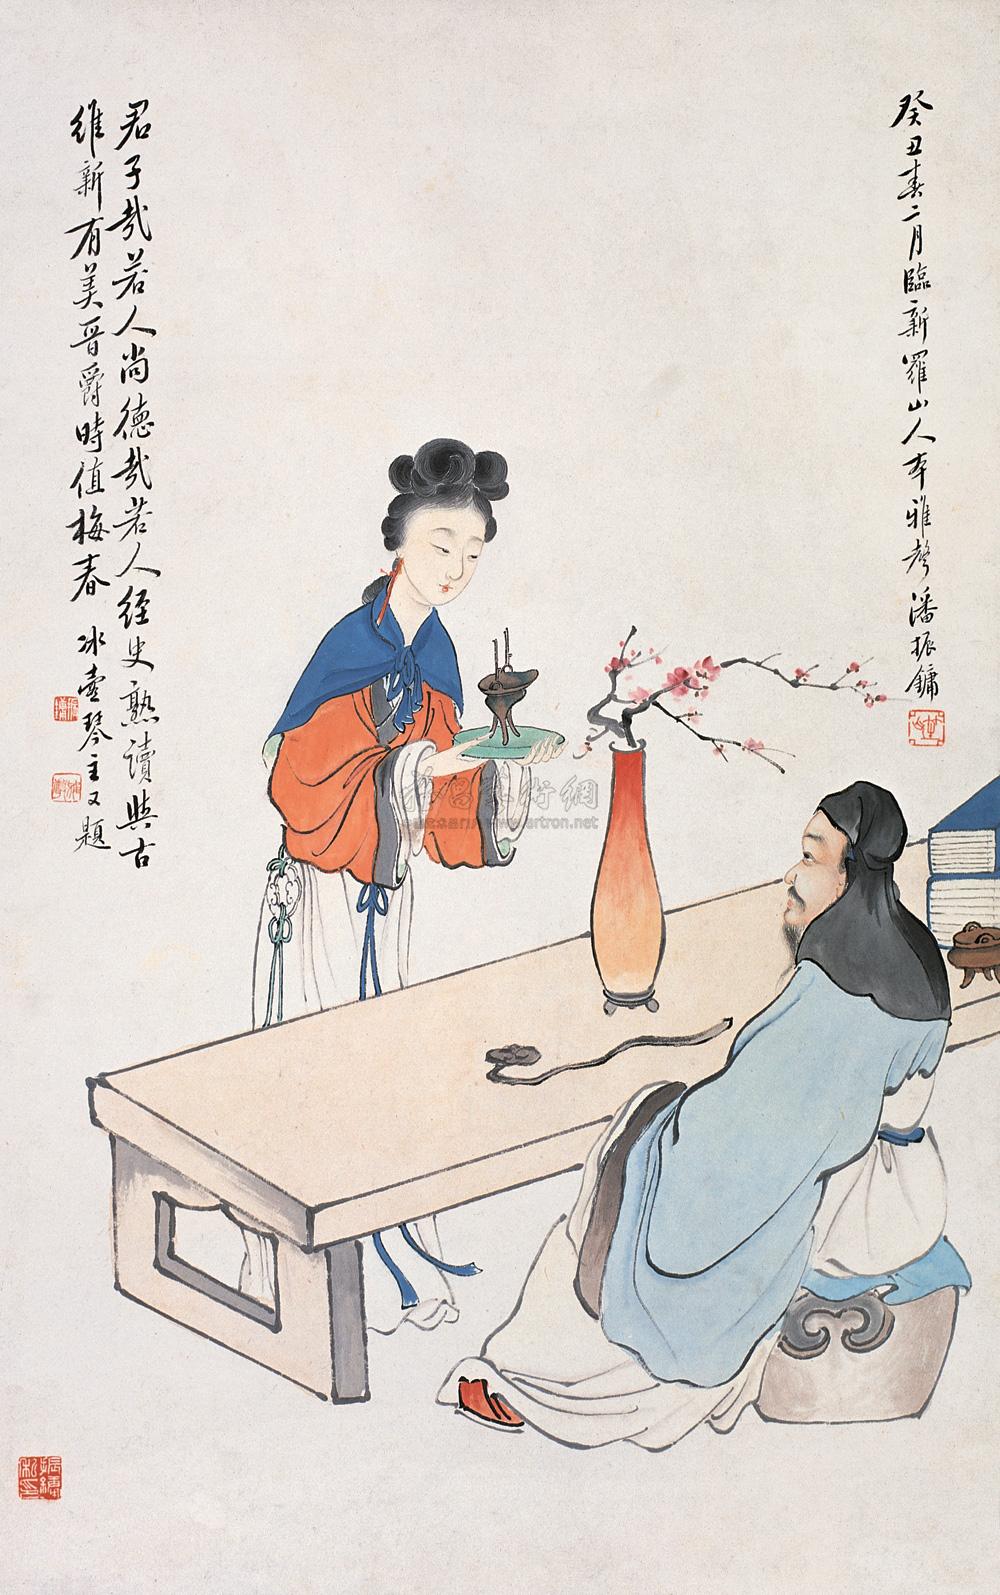 癸丑春二月臨新羅山人本雅聲潘振鏞
君子哉若人尚德哉若人經史熟讀與古
維新有美晉爵時值梅春 冰壺琴主又題
www.artron.net